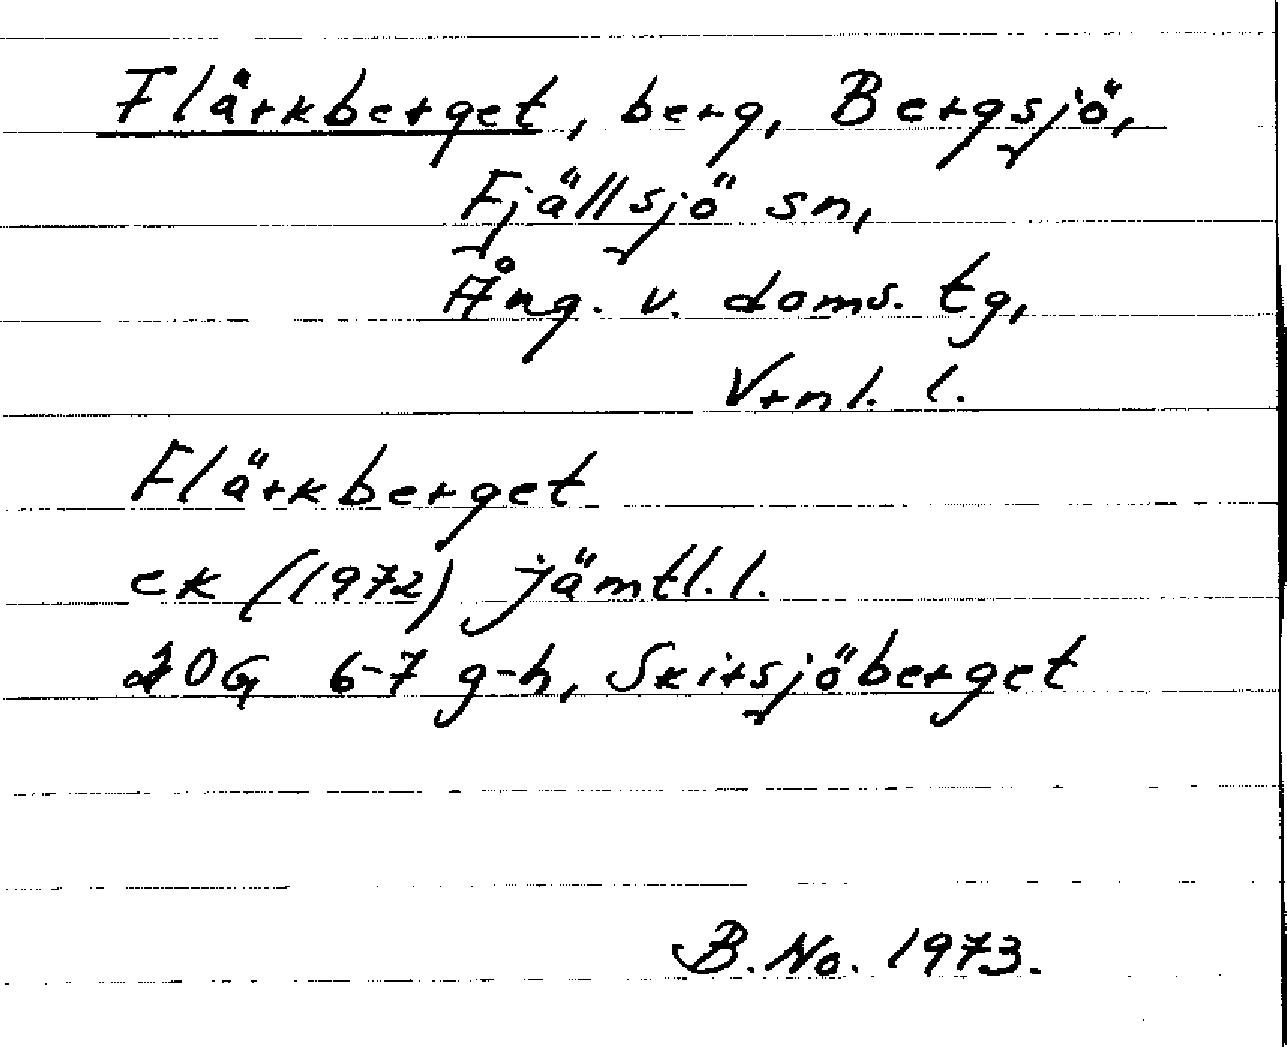 Flärkberget, berg, Bergsjö,
Fjällsjö sn,
Ång. v. doms. tg,
Vrnl. l.
Flärkberget
ek (1972) jämtl. l.
20G 6-7 g-h, Skirsjöberget
B. No. 1973.